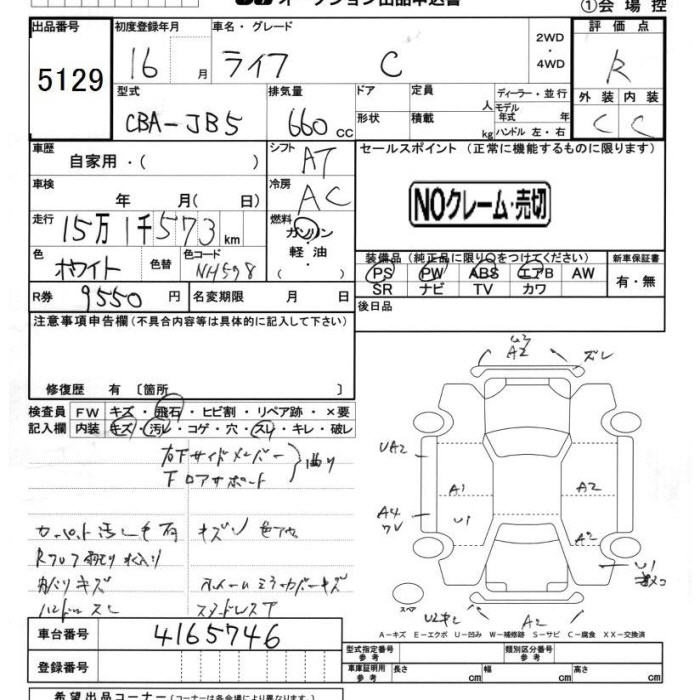 ①会場控
出品番号
5129
初度登録年月
16 月
車名・グレード
ライフ C
2WD
・
4WD
評価点
R
外装 内装
C C
型式
CBA-JB5
排気量
660 cc
ドア
形状
定員
人
積載
kg
ディーラー・並行
モデル年式 年
ハンドル 左・右
車歴
自家用・( )
シフト
AT
車検
年 月( 日)
冷房
AC
走行
15万1千573 km
燃料
ガソリン
・
軽油
( )
色
ホワイト
色替
色コード
NH578
R券
9550 円
名変期限 月 日
セールスポイント (正常に機能するものに限ります)
NOクレーム・売切
装備品(純正品に限り○をつけてください)
PS PW ABS エアB AW
SR ナビ TV カワ
新車保証書
有・無
後日品
注意事項申告欄(不具合内容等は具体的に記入して下さい)
修復歴 有〔箇所 〕
検査員
記入欄
FW キズ・飛石・ヒビ割・リペア跡・×要
内装 キズ・汚レ・コゲ・穴・スレ・キレ・破レ
右下サイドメンバー
下ロアサポート
曲り
キズ
内バリキズ
ハンドルスレ
ルームミラーカバーキズ
スタッドレスT
U3
A2
ズレ
UA2
A4
A1
U1
A2
A2
U1
スペア
A2
A-キズ E-エクボ U-凹み W-補修跡 S-サビ C-腐食 XX-交換済
車台番号
4165746
登録番号
型式指定番号
参考
類別区分番号
参考
車庫証明用
参考
長さ cm
幅 cm
高さ cm
希望出品コーナー(コーナーは各会場により異なります)